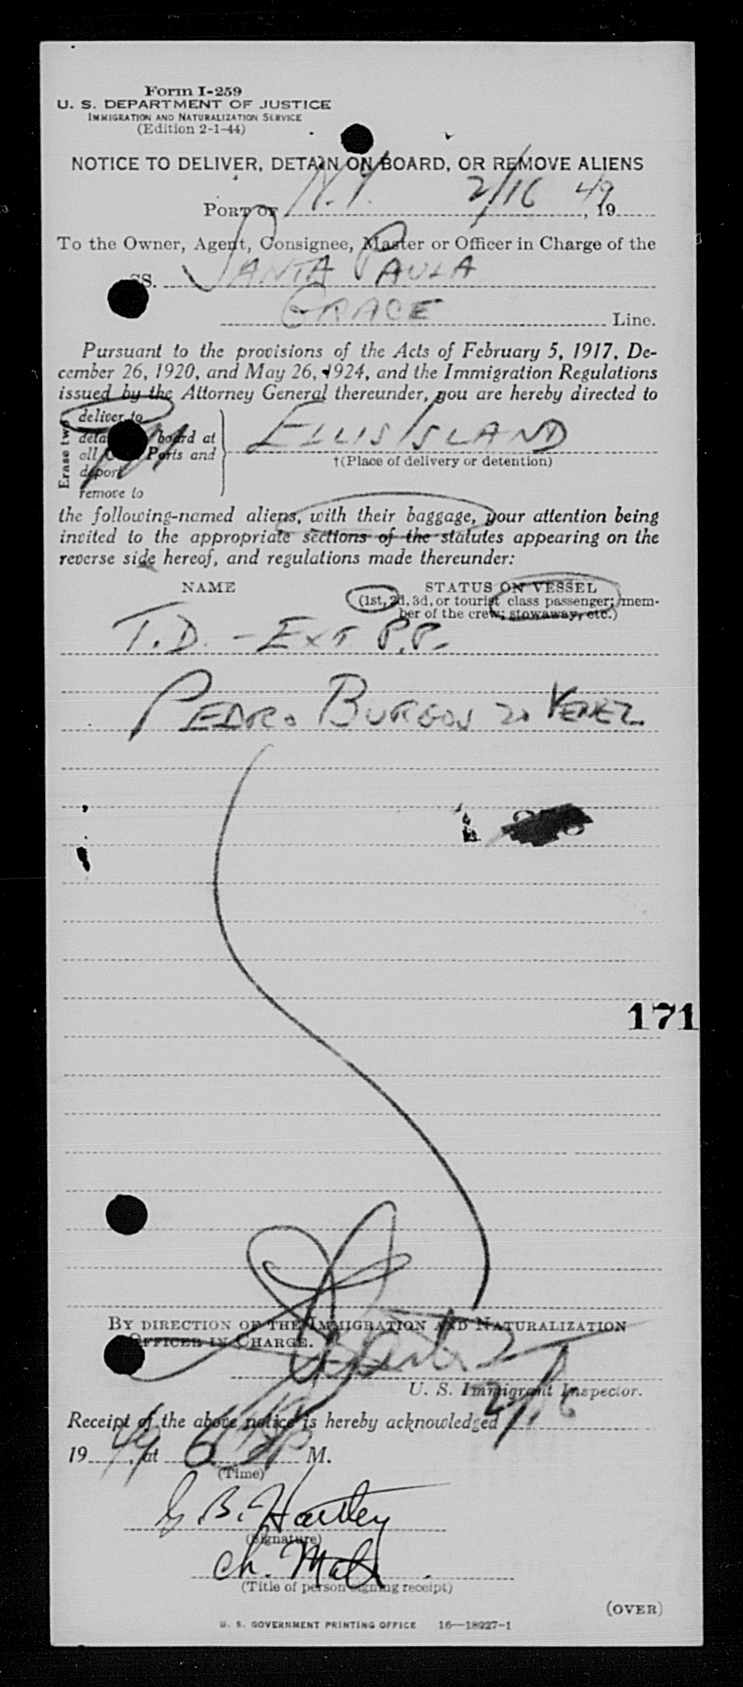 Form I-259
U. S. DEPARTMENT OF JUSTICE
IMMIGRATION AND NATURALIZATION SERVICE
(Edition 2-1-44)
NOTICE TO DELIVER, DETAIN ON BOARD, OR REMOVE ALIENS
PORT OF N.Y. 2/16 49, 19
To the Owner, Agent, Consignee, Master or Officer in Charge of the
SS. SANTA PAULA
GRACE Line.
Pursuant to the provisions of the Acts of February 5, 1917, De-
cember 26, 1920, and May 26, 1924, and the Immigration Regulations
issued by the Attorney General thereunder, you are hereby directed to
Erase two
deliver to
board at
all Ports and
deport
remove to
ELLIS ISLAND
†(Place of delivery or detention)
the following-named aliens, with their baggage, your attention being
invited to the appropriate sections of the statutes appearing on the
reverse side hereof, and regulations made thereunder:
NAME STATUS ON VESSEL
(1st, 2d, 3d, or tourist class passenger; mem-
ber of the crew; stowaway, etc.)
T.D. - EXT P.P.
PEDRO BURGOS 20 VENEZ.
171
BY DIRECTION OF THE IMMIGRATION AND NATURALIZATION
OFFICER IN CHARGE.
U. S. Immigrant Inspector.
Receipt of the above notice is hereby acknowledged 2/16
19 49, at 6 P M.
(Time)
G. B. Hartley
(Signature)
Ch. Mate
(Title of person signing receipt)
(OVER)
U. S. GOVERNMENT PRINTING OFFICE 16—18927-1